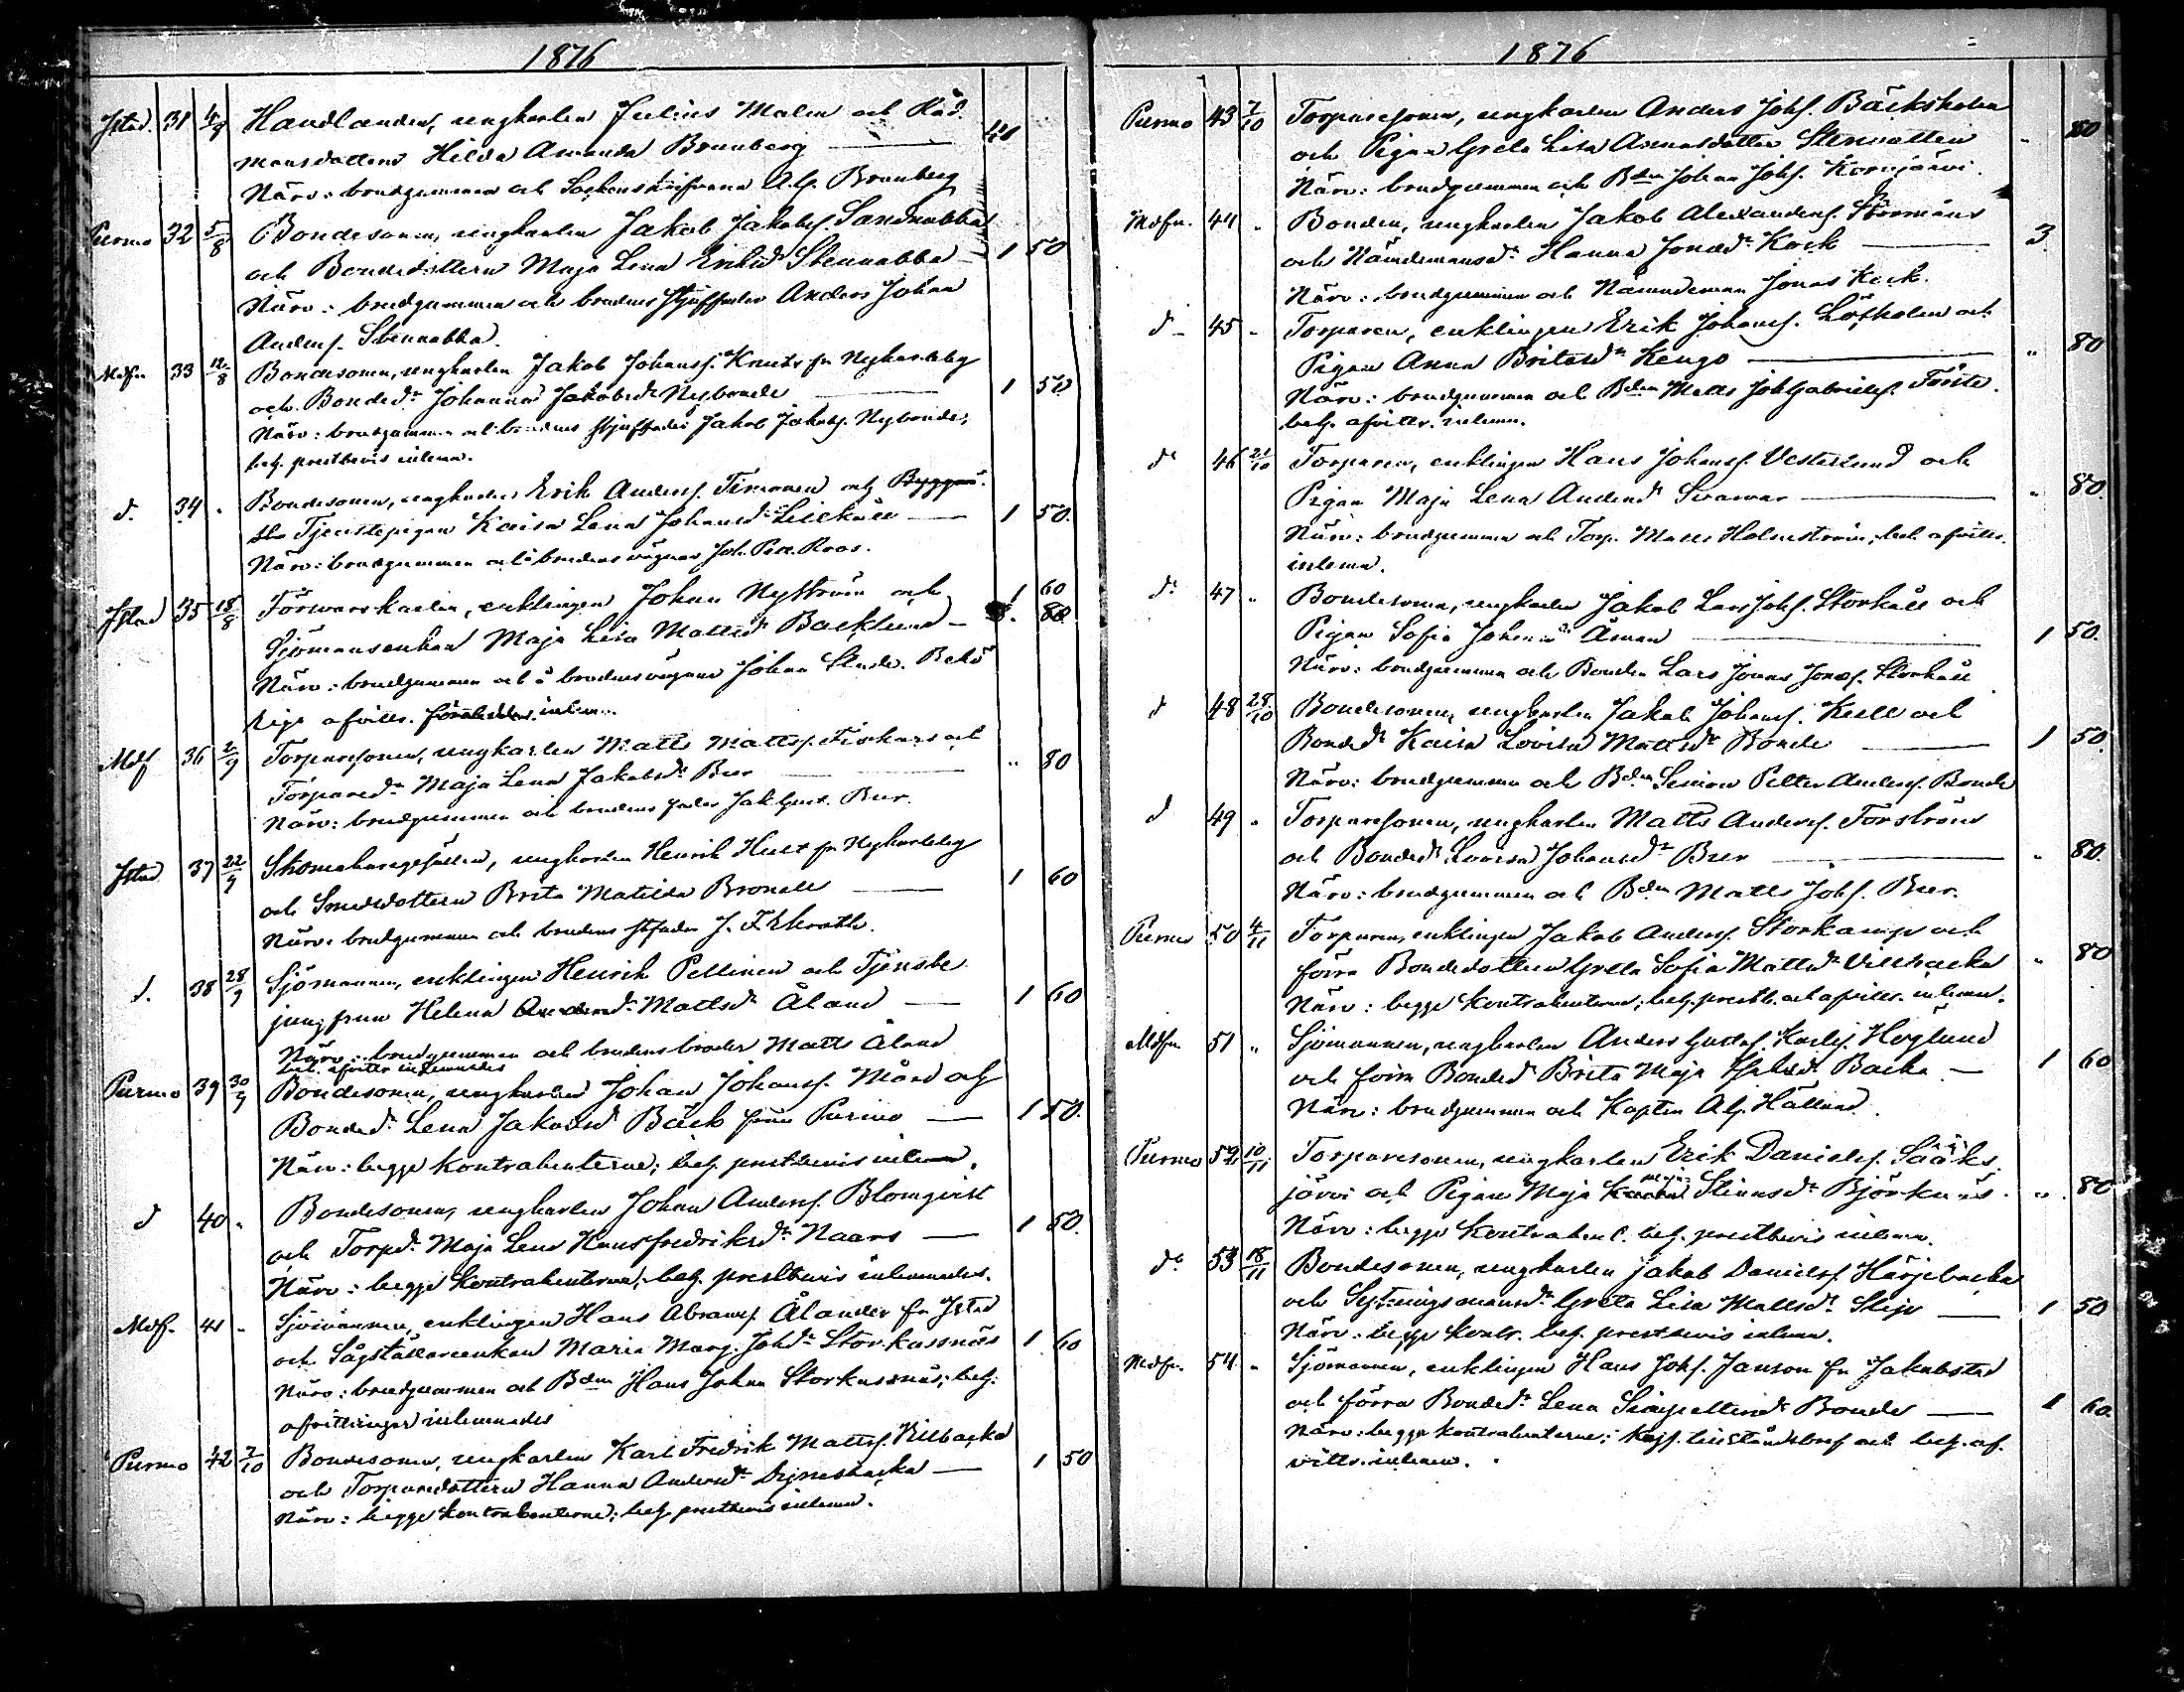 1876
Jstad. 31 4/8 Handlanden, ungkarlen Julius Malm och Råd
mansdottern Hilda Amanda Brunberg
Närv: brudgummen och Sockenskrifvaren A. G. Brunberg
Purmo 32 5/8 Bondesonen, ungkarlen Jakob Jakobss. Sandnabba
och Bondedottern Maja Lena Eriksdr Stennabba 1 50
Närv: brudgummen och brudens styffader Anders Johan
Anderss. Stennabba.
Mdfn 33 12/8 Bondesonen, ungkarlen Jakob Johanss. Knuts fr Nykarleby
och Bondedr Johanna Jakobsdr Nybonde 1 50
Närv: brudgummen och brudens styffader Jakob Jakobss. Nybonde;
beh. prestbevis inlemn.
d. 34 " Bondesonen, ungkarlen Erik Anderss. Timonen och
Tjenstepigan Kaisa Lena Johansdr Lillkåll 1 50.
Närv: brudgummen och å brudens vägnar Joh. Roos.
Jstad 35 18/8 Förvarskarlen, enklingen Johan Nyström och 1 60
Sjömansenkan Maja Lisa Mattsdr Backlund
Närv: brudgummen och å brudens vägnar Johan Behö
riga afvittr. inlemn.
Mdf 36 2/9 Torparesonen, ungkarlen Matts Mattss. Fiskars och
Torparedr Maja Lena Jakobsdr Bur " 80
Närv: brudgummen och brudens fader Jak. Gust. Bur.
Jstad 37 22/9 Skomakaregesällen, ungkarlen Henrik Hult fr Nykarleby
och Smedsdottern Brita Matilda Bronell 1 60
Närv: brudgummen och brudens stfader J. F. Ekroth.
d. 38 28/9 Sjömannen, enklingen Henrik Pellinen och Tjenste
jungfrun Helena Mattsdr Åland 1 60
Närv: brudgummen och brudens broder Matts Åland
beh. afvittr inlemnades
Purmo 39 30/9 Bondesonen, ungkarlen Johan Johanss. Mård och
Bondedr Lena Jakobsdr Bäck från Purmo 1 50.
Närv: begge kontrahenterne; beh. prestbevis inlemn.
d 40 " Bondesonen, ungkarlen Johan Anderss. Blomqvist
och Torpdr Maja Lena Hansfredriksdr Naars 1 50.
Närv: begge kontrahenterne; beh. prestbevis inlemnades.
Mdf. 41 " Sjömannen, enklingen Hans Abramss. Ålander fr Jstad
och Sågställareenkan Maria Marg. Johdr Storkassnäs 1 60
Närv: brudgummen och Bdn Hans Johan Storkassnäs; beh.
afvittringar inlemnades
Purmo 42 7/10 Bondesonen, ungkarlen Karl Fredrik Mattss. Villbacka
och Torparedottern Hanna Andersdr Dynesbacka 1 50
Närv: begge kontrahenterne; beh. prestbevis inlemn.
1876
Purmo 43 7/10 Torparesonen, ungkarlen Anders Johs. Bäcksholm
och Pigan Greta Lisa Annasdotter Stenvattin " 80
Närv: brudgummen och Bdn Johan Johs. Korsjärvi.
Mdfn. 44 " Bonden, ungkarlen Jakob Alexanders. Stormåns
och Nämdemansdr Hanna Jonasdr Kock 3
Närv: brudgummen och Nämndeman Jonas Kock.
d 45 " Torparen, enklingen Erik Johans. Löfholm och
Pigan Anna Britasdr Kengo " 80
Närv: brudgummen och Bdn Matts Joh Gabrielss. Förste.
beh. afvittr. inlemn.
d 46 21/10 Torparen, enklingen Hans Johanss. Vesterlund och
Pigan Maja Lena Andersdr Svarvar " 80.
Närv: brudgummen och Torp. Matts Holmström; beh. afvittr.
inlemn.
d: 47 " Bondesonen, ungkarlen Jakob Lars Johs. Storkåll och
Pigan Sofia Johansdr Åman 1 50.
Närv: brudgummen och Bonden Lars Jonas Jonass. Storkåll
d 48 28/10 Bondesonen, ungkarlen Jakob Johanss. Kull och
Bondedr Kaisa Lovisa Mattsdr Bonde 1 50.
Närv: brudgummen och Bdn Simon Petter Anderss. Bonde
d 49 " Torparesonen, ungkarlen Matts Anderss. Forström
och Bondedr Lovisa Johansdr Bur " 80.
Närv: brudgummen och Bdn Matts Johs. Bur.
Purmo 50 4/11 Torparen, enklingen Jakob Anderss. Storkamp och
förra Bondedottern Greta Sofia Mattsdr Villbacka " 80
Närv: begge kontrahenterne; beh. prestb. och afvittr. inlemn.
Mdfn 51 " Sjömannen, ungkarlen Anders Gustaf Karlss. Höglund
och förra Bondedr Brita Maja Backa 1 60
Närv: brudgummen och Kapten Alf. Hällund.
Purmo 52 10/11 Torparesonen, ungkarlen Erik Danielss. Sääks
järvi och Pigan Maja Stinasdr Björknäs. " 80
Närv: begge kontrahent. beh. prestbevis inlemn.
d 53 18/11 Bondesonen, ungkarlen Jakob Danielss. Härjebacka
och Sytningsmansdr Greta Lisa Mattsdr Slip 1 50
Närv: begge kontr. beh. prestbevis inlemn.
Mdfn. 54 " Sjömannen, enklingen Hans Johs. Janson fr Jakobstad
och förra Bondedr Lena Simpettersdr Bonde 1 60.
Närv: begge kontrahenterne; Kejs. tillståndsbref och beh. af-
vittr. inlemn.